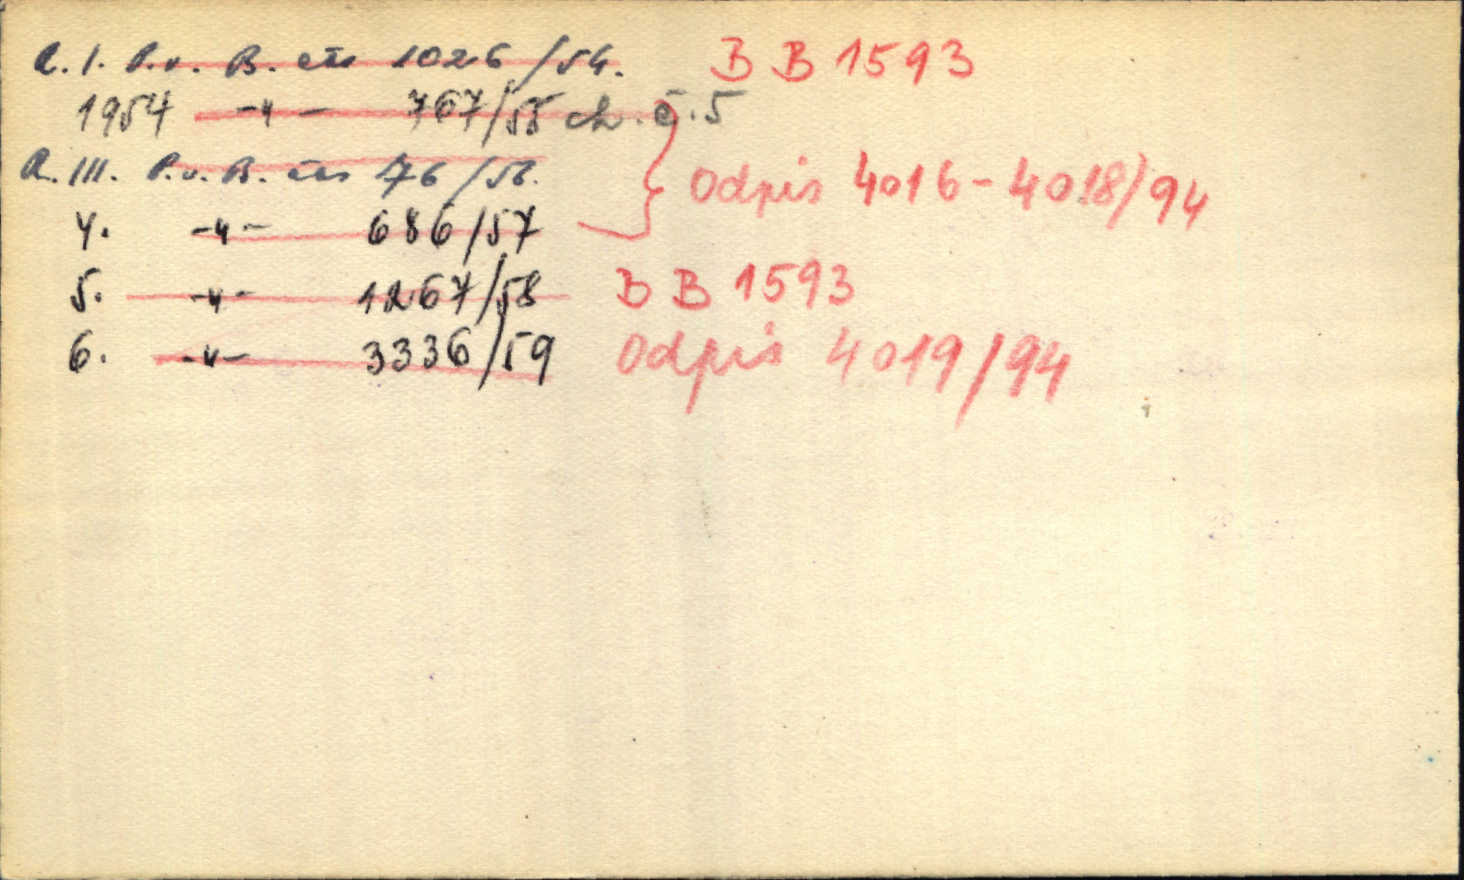 R. I. P.v. B. čís 1026/54. B B 1593
1954 -"- 767/55 ch. č. 5
R. III. P.v. B. čís 76/56. Odpis 4016-4018/94
4. -"- 686/57
5. -"- 1267/58 B B 1593
6. -"- 3336/59 Odpis 4019/94